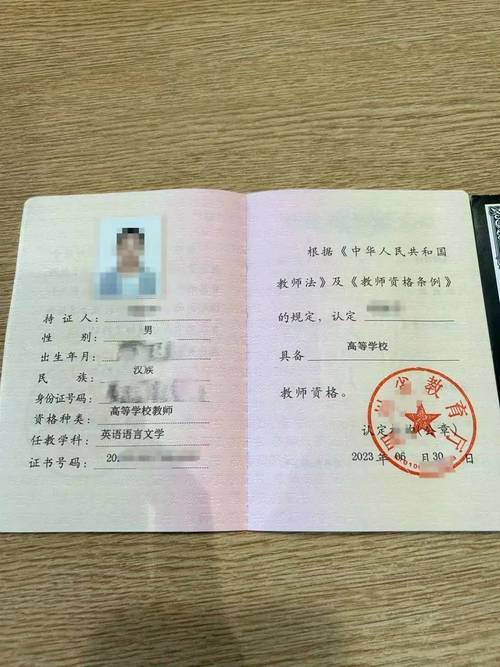 持证人：
性别：男
出生年月：
民族：汉族
身份证号码：
资格种类：高等学校教师
任教学科：英语语言文学
证书号码：20
根据《中华人民共和国
教师法》及《教师资格条例》
的规定，认定
具备 高等学校
教师资格。
省教育厅
认定机构(公章)
2023 年 06 月 30 日